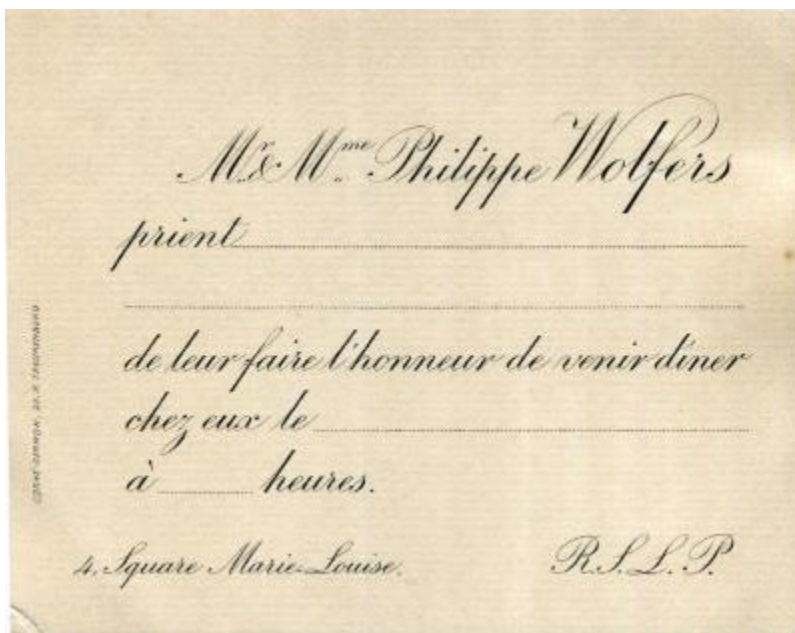 Mr & Mme Philippe Wolfers
prient
de leur faire l'honneur de venir dîner
chez eux le
à heures.
4. Square Marie-Louise.
R. S. L. P.